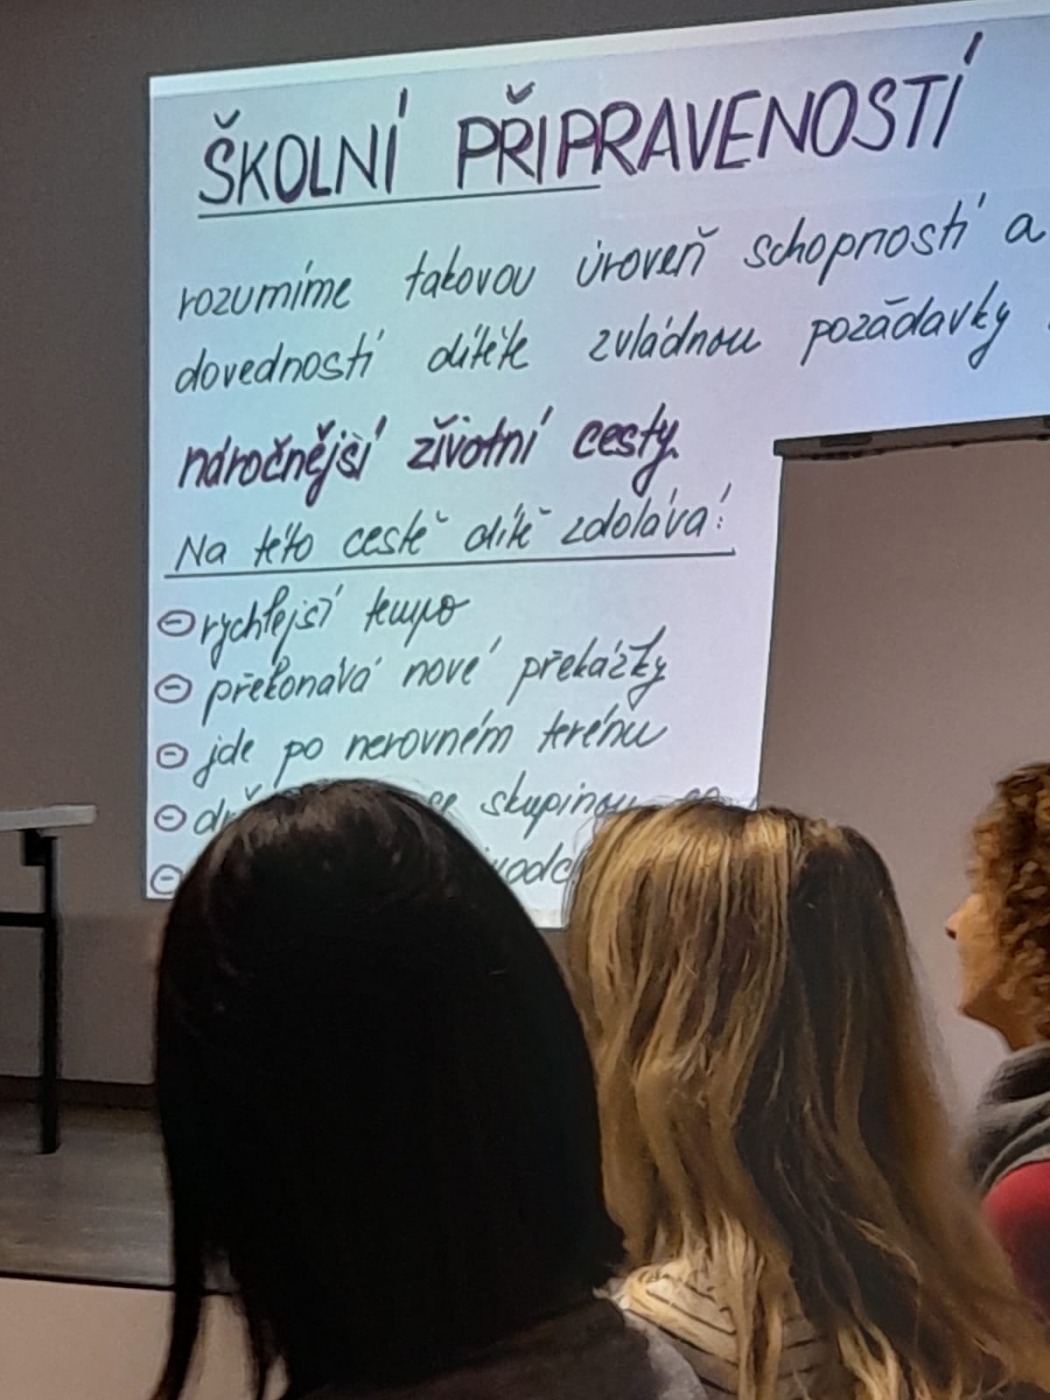 ŠKOLNÍ PŘIPRAVENOSTÍ
rozumíme takovou úroveň schopností a
dovedností dítěte zvládnou požadavky
náročnější životní cesty.
Na této cestě dítě zdolává:
⊖ rychlejší tempo
⊖ překonává nové překážky
⊖ jde po nerovném terénu
⊖ se skupinou
⊖